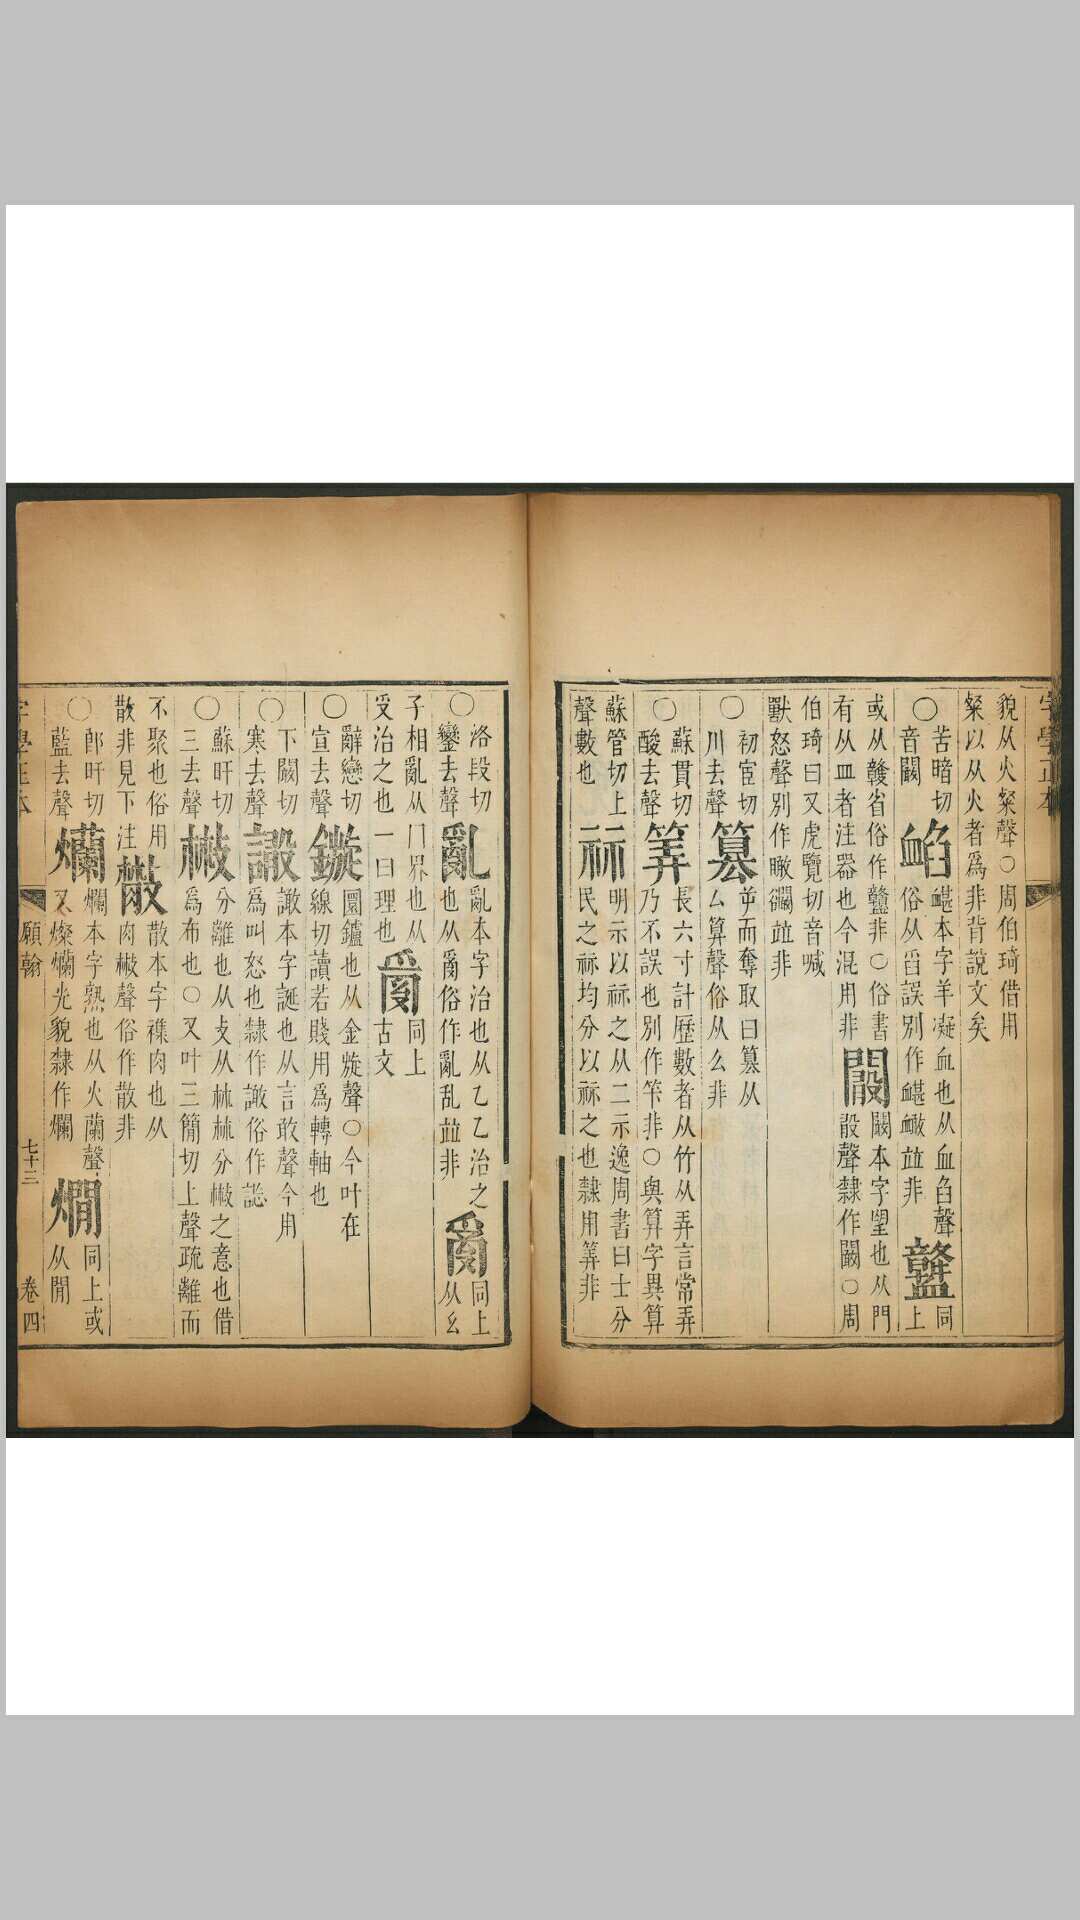 字學正本
貌从火粲聲○周伯琦借用
粲以从火者爲非背說文矣
○苦暗切
音闞
䘓
䘓本字羊凝血也从血臽聲
俗从臽誤別作衉衉並非
同上
或从贛省俗作非○俗書
有从皿者注器也今混用非
闞本字望也从門
㪉聲隸作闞○周
伯琦曰又虎覽切音喊
獸怒聲別作瞰㘚並非
○初宦切
川去聲
篡
屰而奪取曰篡从
厶算聲俗从么非
○蘇貫切
酸去聲
筭
長六寸計歷數者从竹从弄言常弄
乃不誤也別作笇非○與算字異算
蘇管切上
聲數也
祘
明示以祘之从二示逸周書曰士分
民之祘均分以祘之也隸用筭非
○洛段切
鑾去聲
亂
亂本字治也从乙乙治之
也从𤔔俗作亂乱並非
𤔔
同上
从幺
子相亂从冂界也从
受治之也一曰理也
同上
古文
○辭戀切
宣去聲
鏇
圜鑪也从金旋聲○今叶在
線切讀若賤用爲轉軸也
○下闞切
寒去聲
諏
譀本字誕也从言敢聲今用
爲叫怒也隸作譀俗作誋
○蘇旰切
三去聲
㪔
分離也从攴从𣏟𣏟分㪔之意也借
爲布也○又叶三簡切上聲疏離而
不聚也俗用
散非見下注
散本字襍肉也从
肉㪔聲俗作散非
○郎旰切
藍去聲
爤
爛本字熟也从火蘭聲
又燦爛光貌隸作爛
燗
同上或
从閒
願翰
七十三
卷四